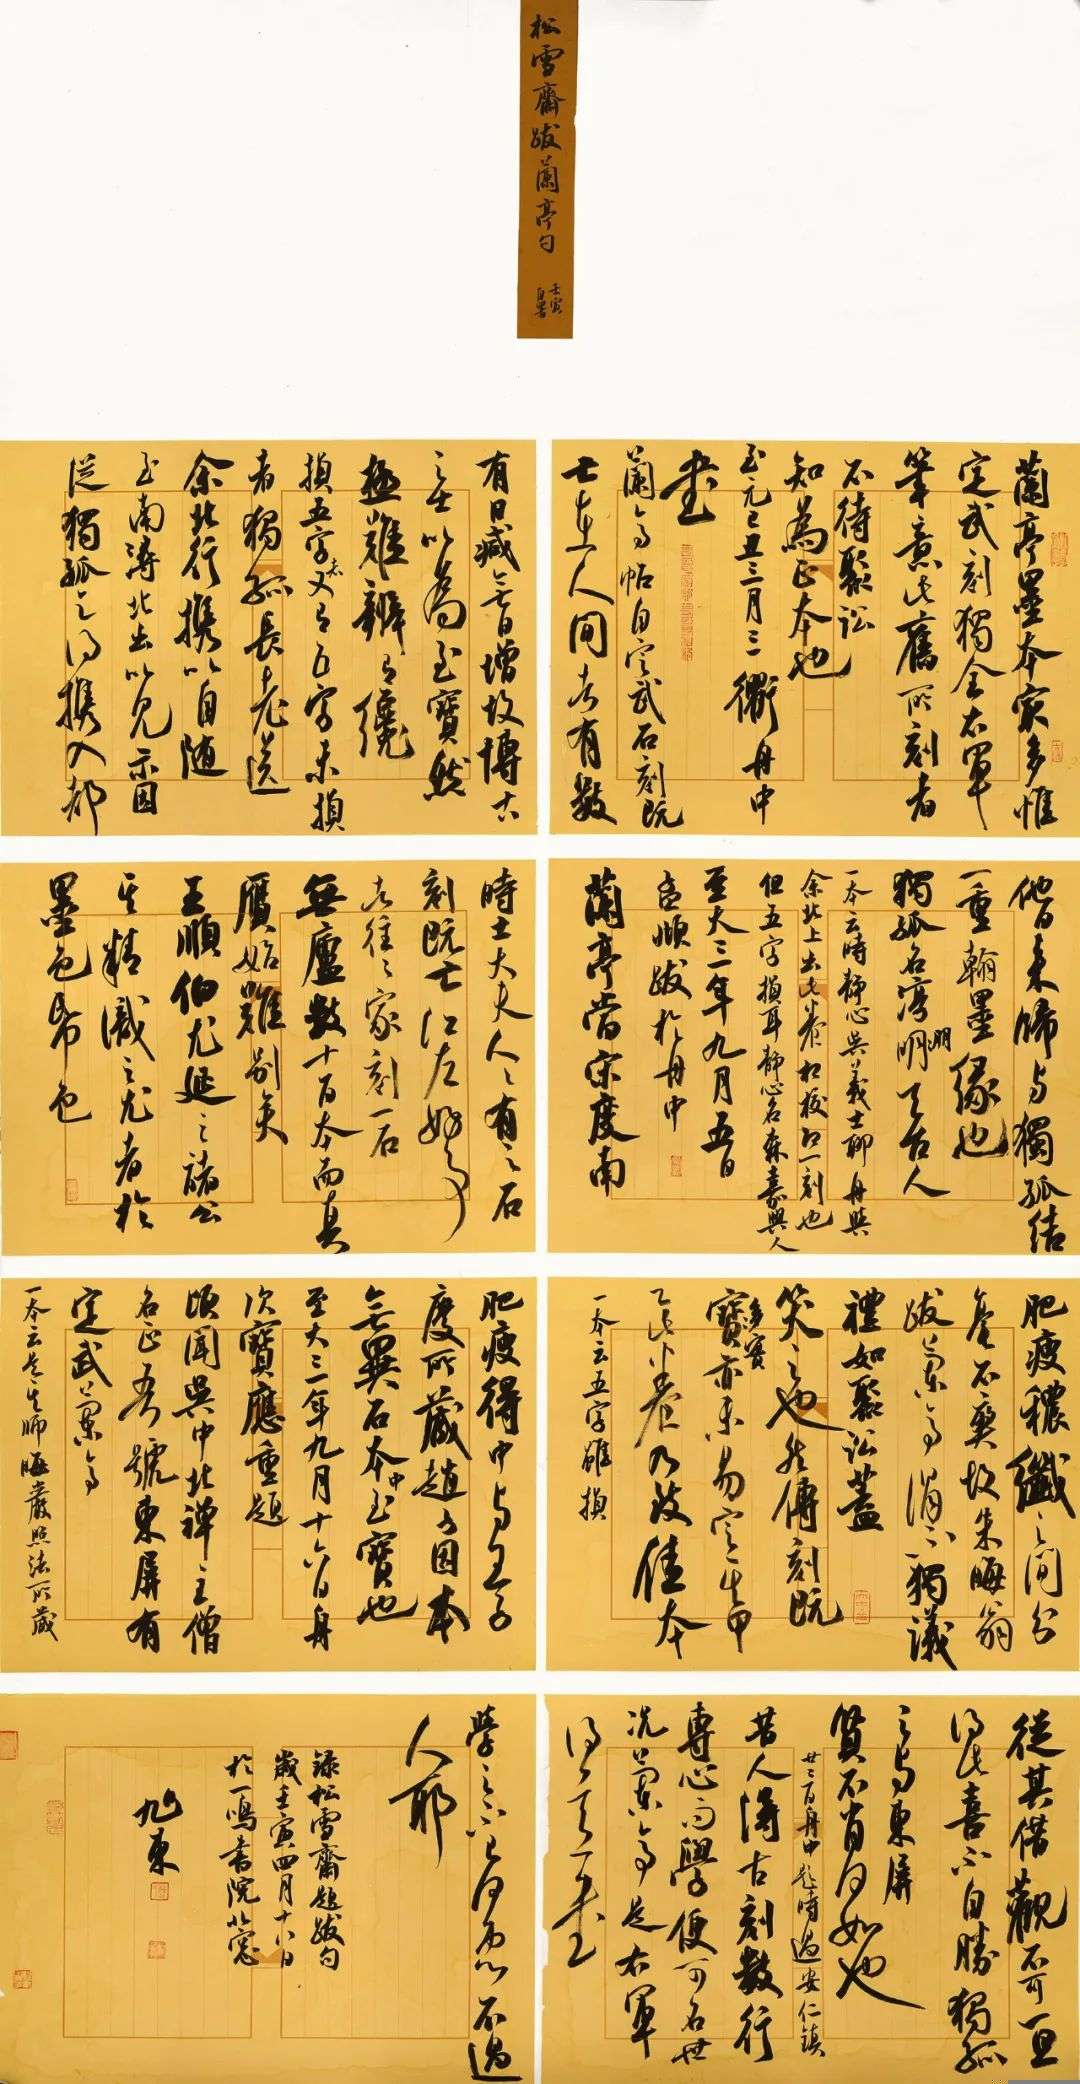 松雪齋跋蘭亭句
壬寅
自署
蘭亭墨本寂多惟
定武刻獨全右軍
筆意此舊所刻者
不待聚訟
知為正本也
至元己丑三月三衢舟中
書
蘭亭帖自定武石刻既
亡在人間者有數
有日減無日增故博古
之士以為至寶然
極難辨又有纔
損五字者又有五字未損
者獨孤長老送
余北行攜以自隨
至南潯北出以見示因
從獨孤乞得攜入都
他日來歸与獨孤結
一重翰墨緣也
獨孤名淳朋明天台人
一本云時靜心與義士聊舟與
余北上出此卷相校即一刻也
但五字損耳靜心名森嘉興人
至大三年九月五日
孟頫跋於舟中
蘭亭當宋度南
時士大夫人人有之石
刻既亡江左好事
者往往家刻一石
無慮數十百本而真
贗始難別矣
王順伯尤延之諸公
其精識之尤者於
墨色帋色
肥瘦穠纖之間分
毫不爽故朱晦翁
跋蘭亭謂不獨議
禮如聚訟蓋
笑之也然傳刻既
多寶亦未易定其甲
乙此卷乃致佳本
一本云五字雖損
肥瘦得中与王子
慶所藏趙子固本
無異石本中至寶也
至大三年九月十六日舟
次寶應重題
頃聞吳中北禪主僧
名正吾號東屏有
定武蘭亭
一本云是其師晦巖照法所藏
從其借觀不可一旦
得此喜不自勝獨孤
之与東屏
賢不肖何如也
廿三日舟中題時過安仁鎮
昔人得古刻數行
專心而學便可名世
況蘭亭是右軍
得意書
學之不已何患不過
人耶
錄松雪齋題跋句
歲壬寅四月十八日
於一鳴書院北窗
旭東